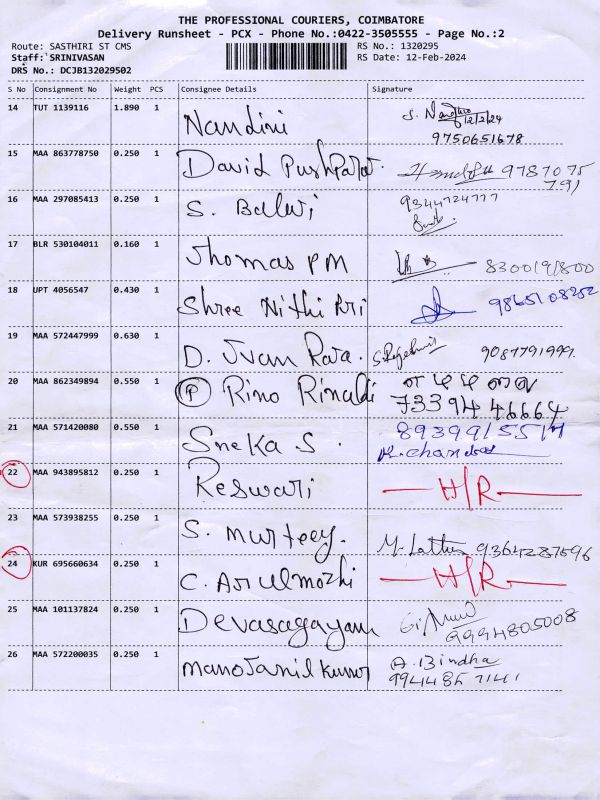 THE PROFESSIONAL COURIERS, COIMBATORE
Delivery Runsheet - PCX - Phone No.:0422-3505555 - Page No.:2
Route: SASTHIRI ST CMS RS No.: 1320295
Staff: SRINIVASAN RS Date: 12-Feb-2024
DRS No.: DCJB132029502
S No Consignment No Weight PCS Consignee Details Signature
14 TUT 1139116 1.890 1 Nandini S. Nandhini
12/2/24
9750651678
15 MAA 863778750 0.250 1 David Pushparaj 9787075
791
16 MAA 297085413 0.250 1 S. Balwi 9344724777
17 BLR 530104011 0.160 1 Thomas PM 8300191800
18 UPT 4056547 0.430 1 Shree Nithi Pri 9865108252
19 MAA 572447999 0.630 1 D. Jvan Raja. 9087791999.
20 MAA 862349894 0.550 1 P Rino Rinaldi
73394 46664
21 MAA 571420080 0.550 1 Sneka S. 8939915517
K. chandra
22 MAA 943895812 0.250 1 Reswari H/R
23 MAA 573938255 0.250 1 S. Murteey. 9364287596
24 KUR 695660634 0.250 1 C. Arulmozhi H/R
25 MAA 101137824 0.250 1 Devasagayam 9994805008
26 MAA 572200035 0.250 1 Manojanil Kumar A. Bindha
9944857141